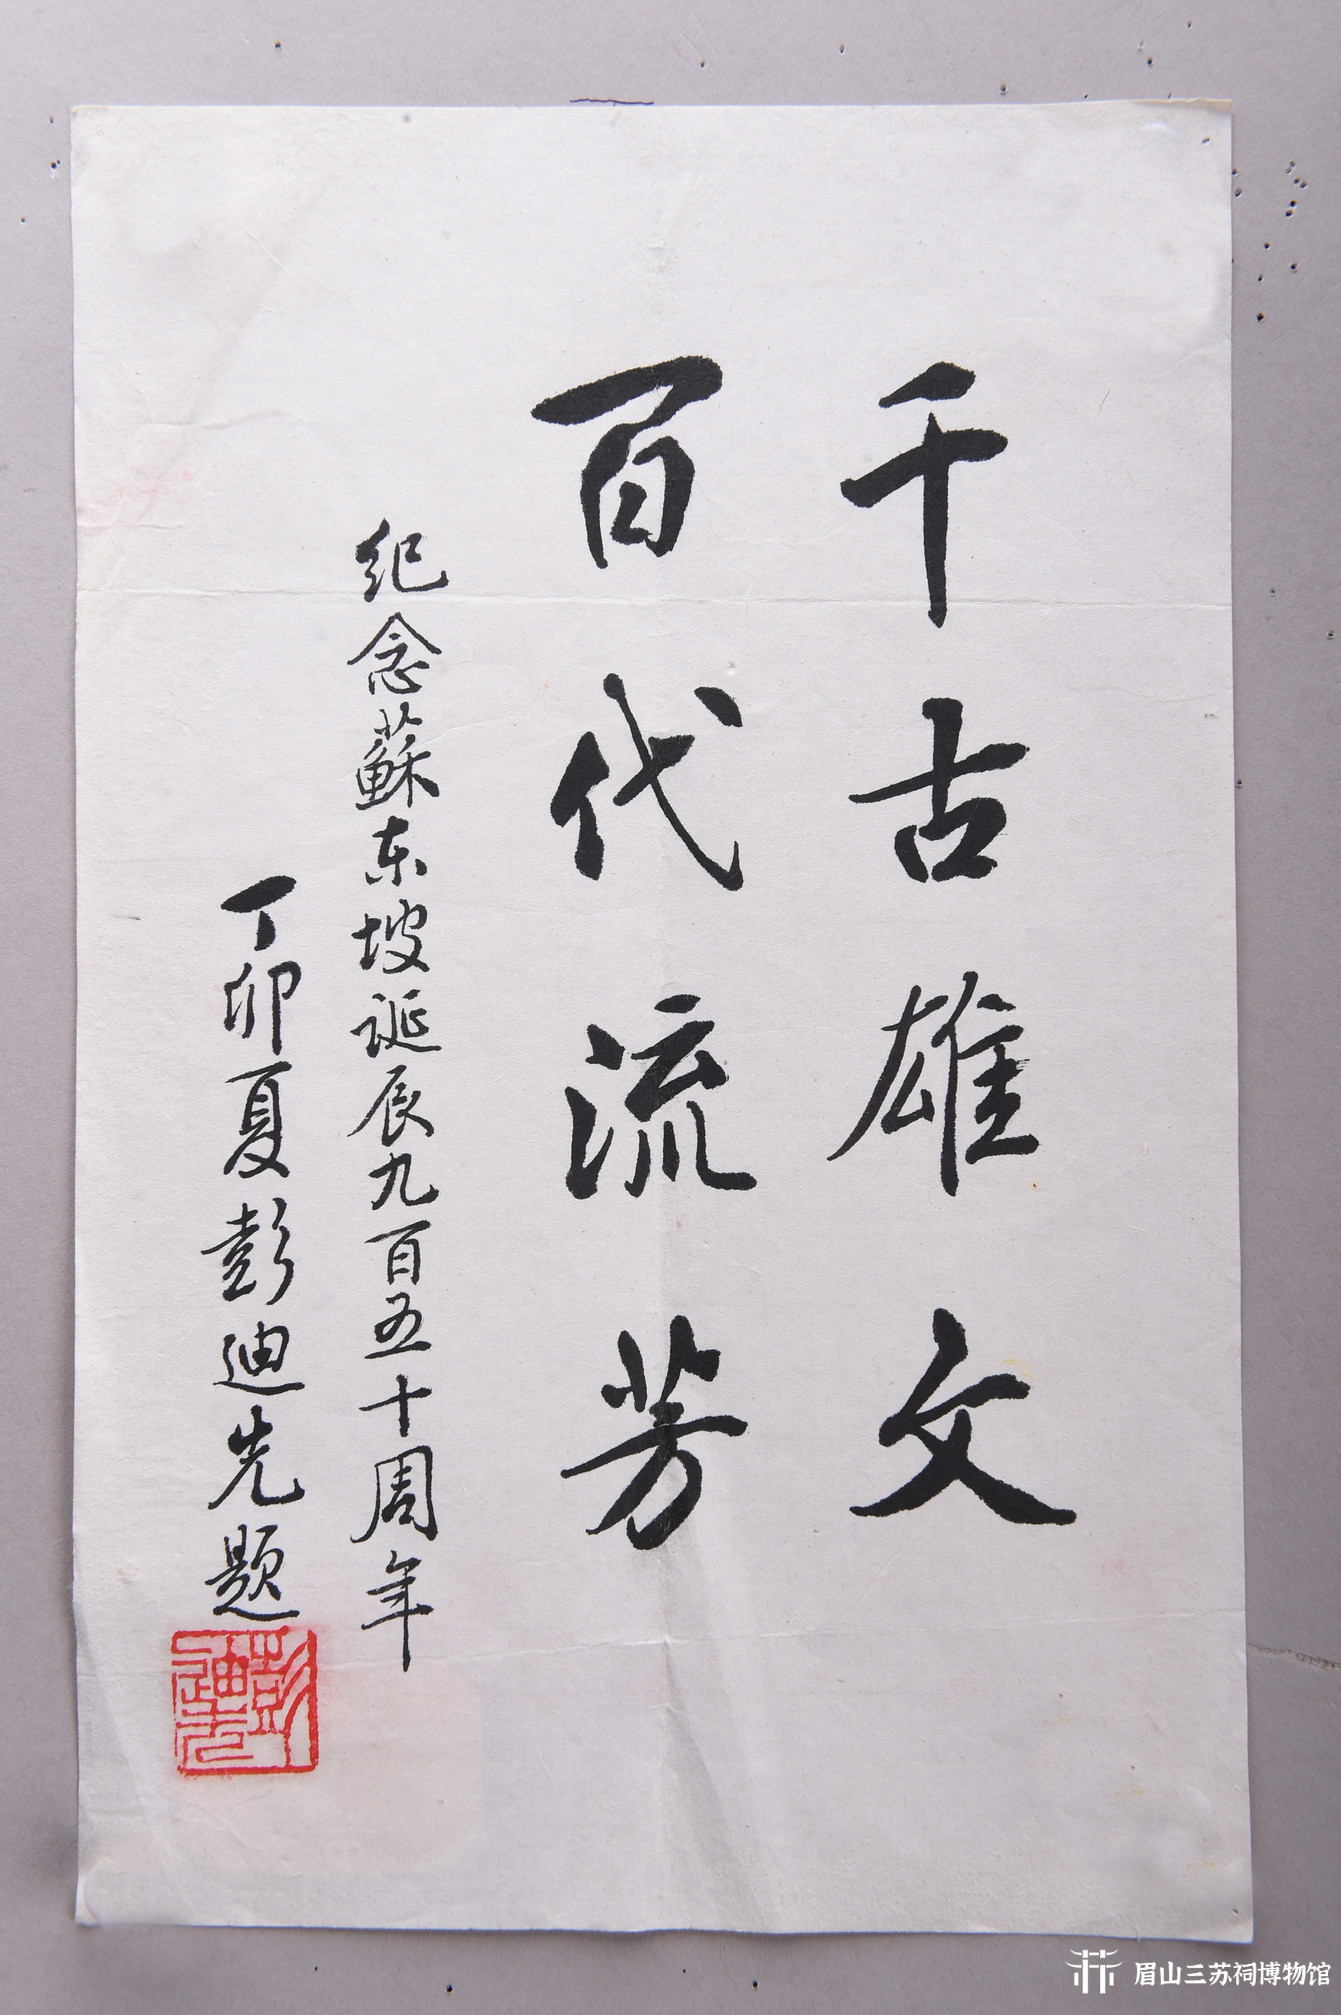 千古雄文
百代流芳
纪念蘇东坡诞辰九百五十周年
丁卯夏彭迪先题
彭迪先
眉山三苏祠博物馆